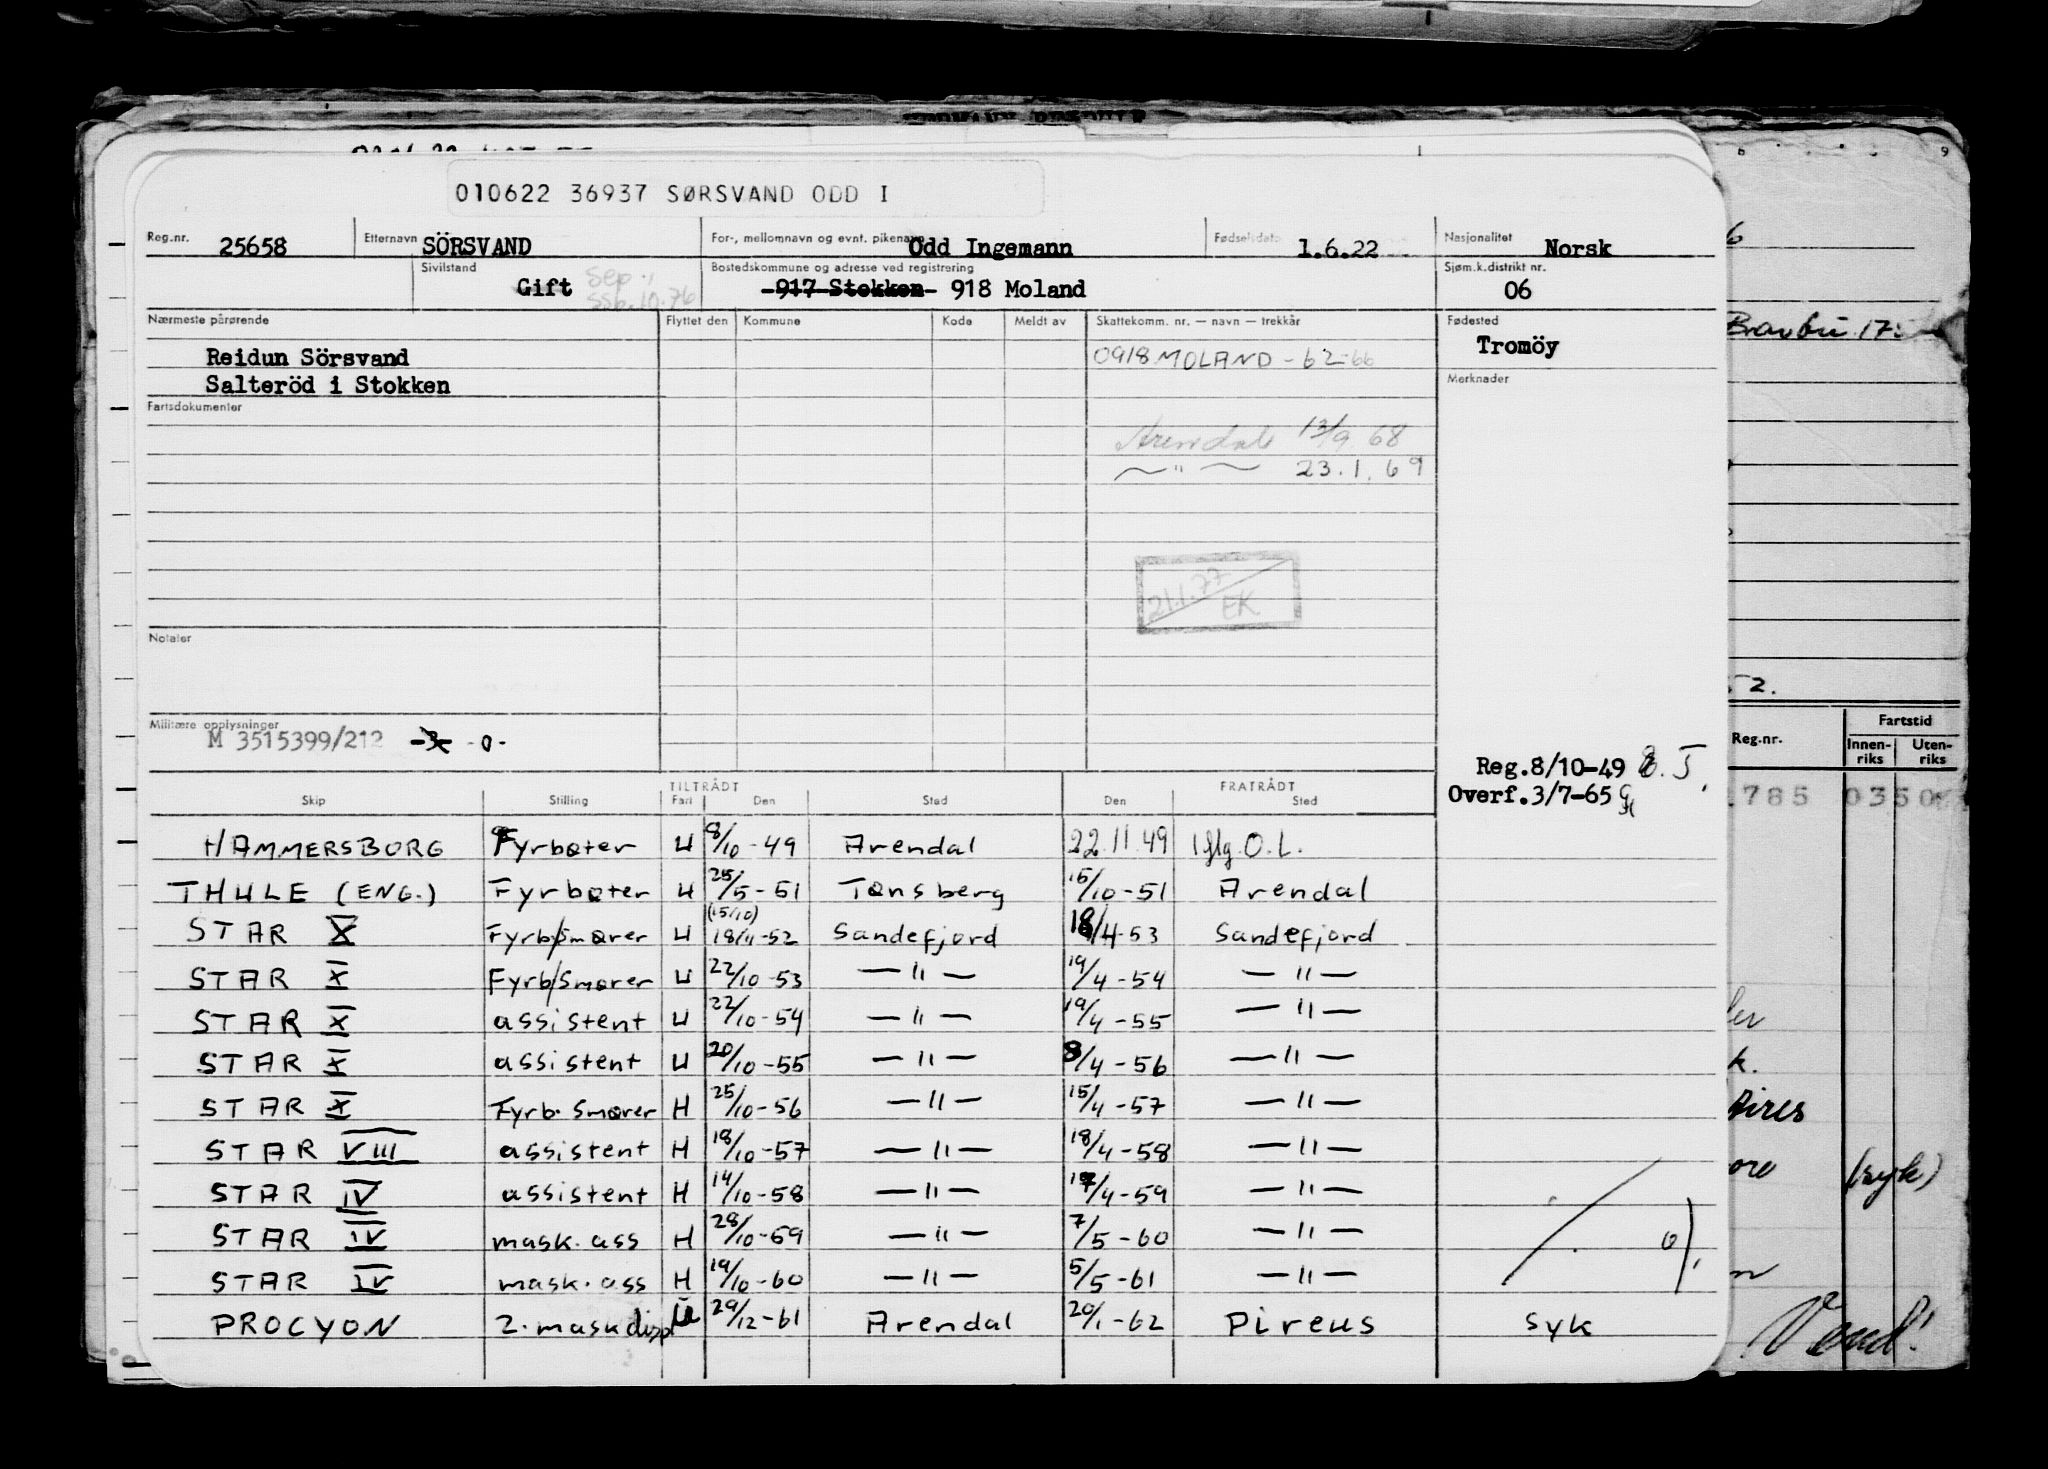 010622 36937 SØRSVAND ODD I
Reg.nr. 25658 Etternavn SÖRSVAND For-, mellomnavn og evnt. pikenavn Odd Ingemann Fødselsdato 1.6.22 Nasjonalitet Norsk
Sivilstand Gift Sep. Bostedskommune og adresse ved registrering 917 Stokken 918 Moland Sjøm.k.distrikt nr. 06
Nærmeste pårørende Flyttet den Kommune Kode Meldt av Skattekomm. nr. — navn — trekkår Fødested
Reidun Sörsvand 0918 MOLAND - 62-66 Tromöy
Salteröd i Stokken Merknader
Fartsdokumenter
Arendal 13/9 68
— " — 23.1.69
21.1.77
EK
Notater
Militære opplysninger
M 3515399/212 -3- -0-
Reg.8/10-49
Overf.3/7-65
TILTRÅDT FRATRÅDT
Skip Stilling Fart Den Sted Den Sted
HAMMERSBORG Fyrbøter U 8/10-49 Arendal 22.11.49 O.L.
THULE (ENG.) Fyrbøter U 25/5-51 Tønsberg 15/10-51 Arendal
STAR X Fyrb/Smører U (15/10) 18/4-52 Sandefjord 18/4-53 Sandefjord
STAR X Fyrb/Smører U 22/10-53 — " — 19/4-54 — " —
STAR X assistent U 22/10-54 — " — 19/4-55 — " —
STAR X assistent U 20/10-55 — " — 8/4-56 — " —
STAR X Fyrb. Smører H 25/10-56 — " — 15/4-57 — " —
STAR VIII assistent H 18/10-57 — " — 18/4-58 — " —
STAR IV assistent H 14/10-58 — " — 17/4-59 — " —
STAR IV mask. ass H 28/10-59 — " — 7/5-60 — " —
STAR IV mask. ass H 19/10-60 — " — 5/5-61 — " —
PROCYON 2. mask disp U 29/12-61 Arendal 20/1-62 Pireus syk
52.
Reg.nr. Fartstid
Innen-riks Uten-riks
785 0350
(syk)
Vend!